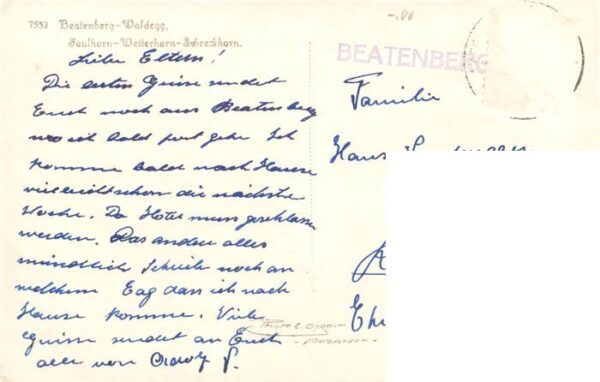 7553 Beatenberg-Waldegg,
Faulhorn-Wetterhorn-Schreckhorn.
BEATENBERG
Liebe Eltern!
Die ersten Grüsse sendet
Euch noch aus Beatenberg
wo ich bald fort gehe. Ich
komme bald nach Hause
vielleicht schon die nächste
Woche. Da Hotel muss geschlossen
werden. Das andere alles
mündlich Schreibe noch an
welchem Tag dass ich nach
Hause komme. Viele
Grüsse sendet an Euch
alle von
Familie
Hans